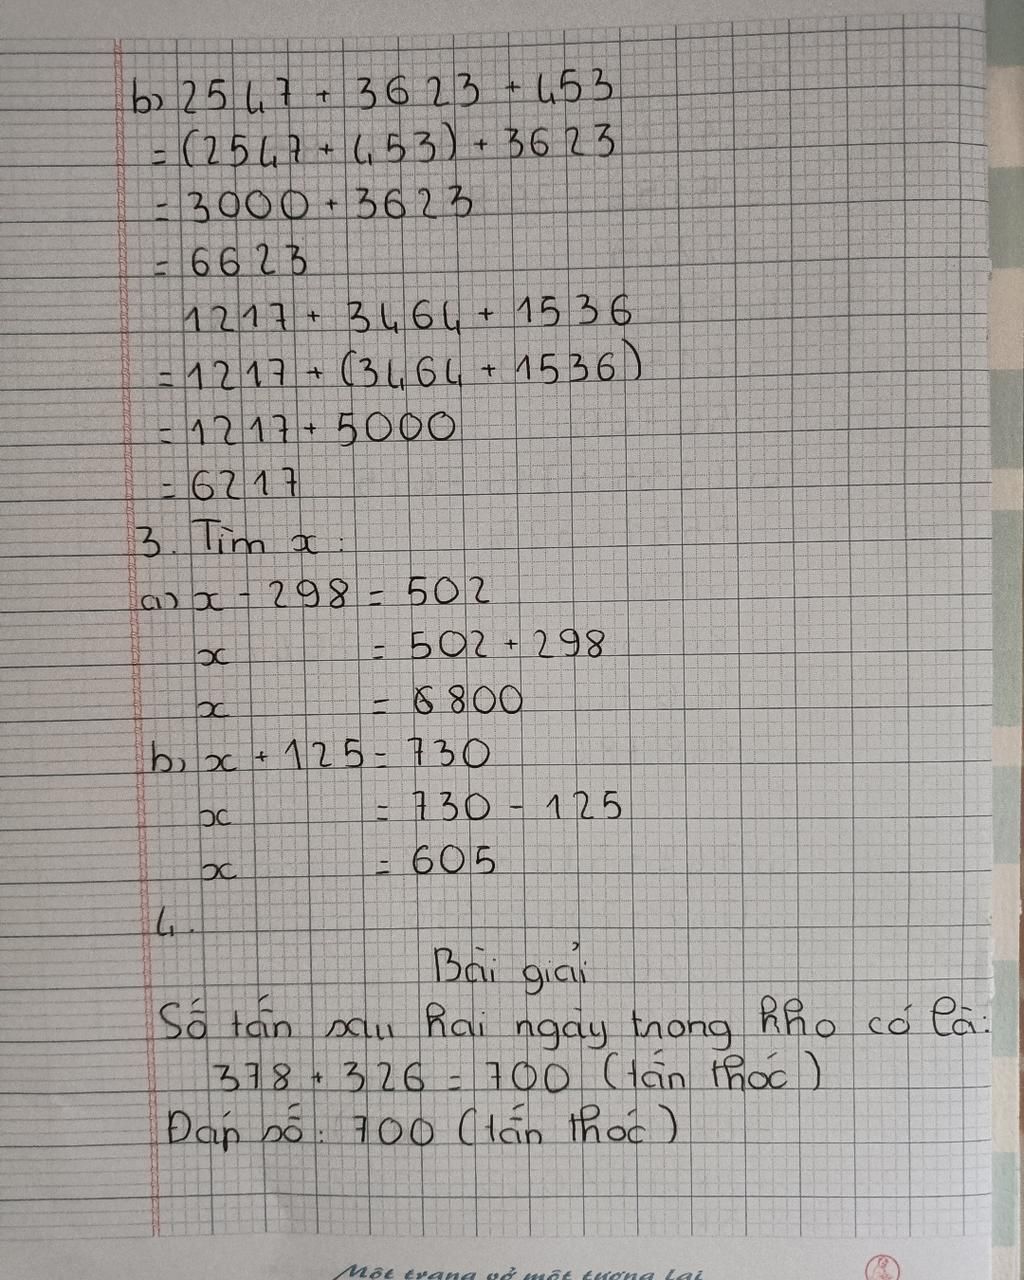 b) 2547 + 3623 + 453
= (2547 + 453) + 3623
= 3000 + 3623
= 6623
1217 + 3464 + 1536
= 1217 + (3464 + 1536)
= 1217 + 5000
= 6217
3. Tìm x:
a) x - 298 = 502
x = 502 + 298
x = 6800
b) x + 125 = 730
x = 730 - 125
x = 605
4.
Bài giải
Số tấn sau hai ngày trong kho có là:
378 + 326 = 700 (tấn thóc)
Đáp số: 700 (tấn thóc)
Một trang vở một tương lai